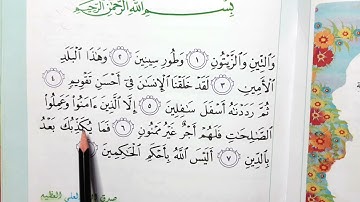 بِسْمِ ٱللَّهِ ٱلرَّحْمَٰنِ ٱلرَّحِيمِ
وَٱلتِّينِ وَٱلزَّيْتُونِ ١ وَطُورِ سِينِينَ ٢ وَهَٰذَا ٱلْبَلَدِ
ٱلْأَمِينِ ٣ لَقَدْ خَلَقْنَا ٱلْإِنسَٰنَ فِىٓ أَحْسَنِ تَقْوِيمٍ ٤
ثُمَّ رَدَدْنَٰهُ أَسْفَلَ سَٰفِلِينَ ٥ إِلَّا ٱلَّذِينَ ءَامَنُوا۟ وَعَمِلُوا۟
ٱلصَّٰلِحَٰتِ فَلَهُمْ أَجْرٌ غَيْرُ مَمْنُونٍ ٦ فَمَا يُكَذِّبُكَ بَعْدُ
بِٱلدِّينِ ٧ أَلَيْسَ ٱللَّهُ بِأَحْكَمِ ٱلْحَٰكِمِينَ
صدق الله العلي العظيم